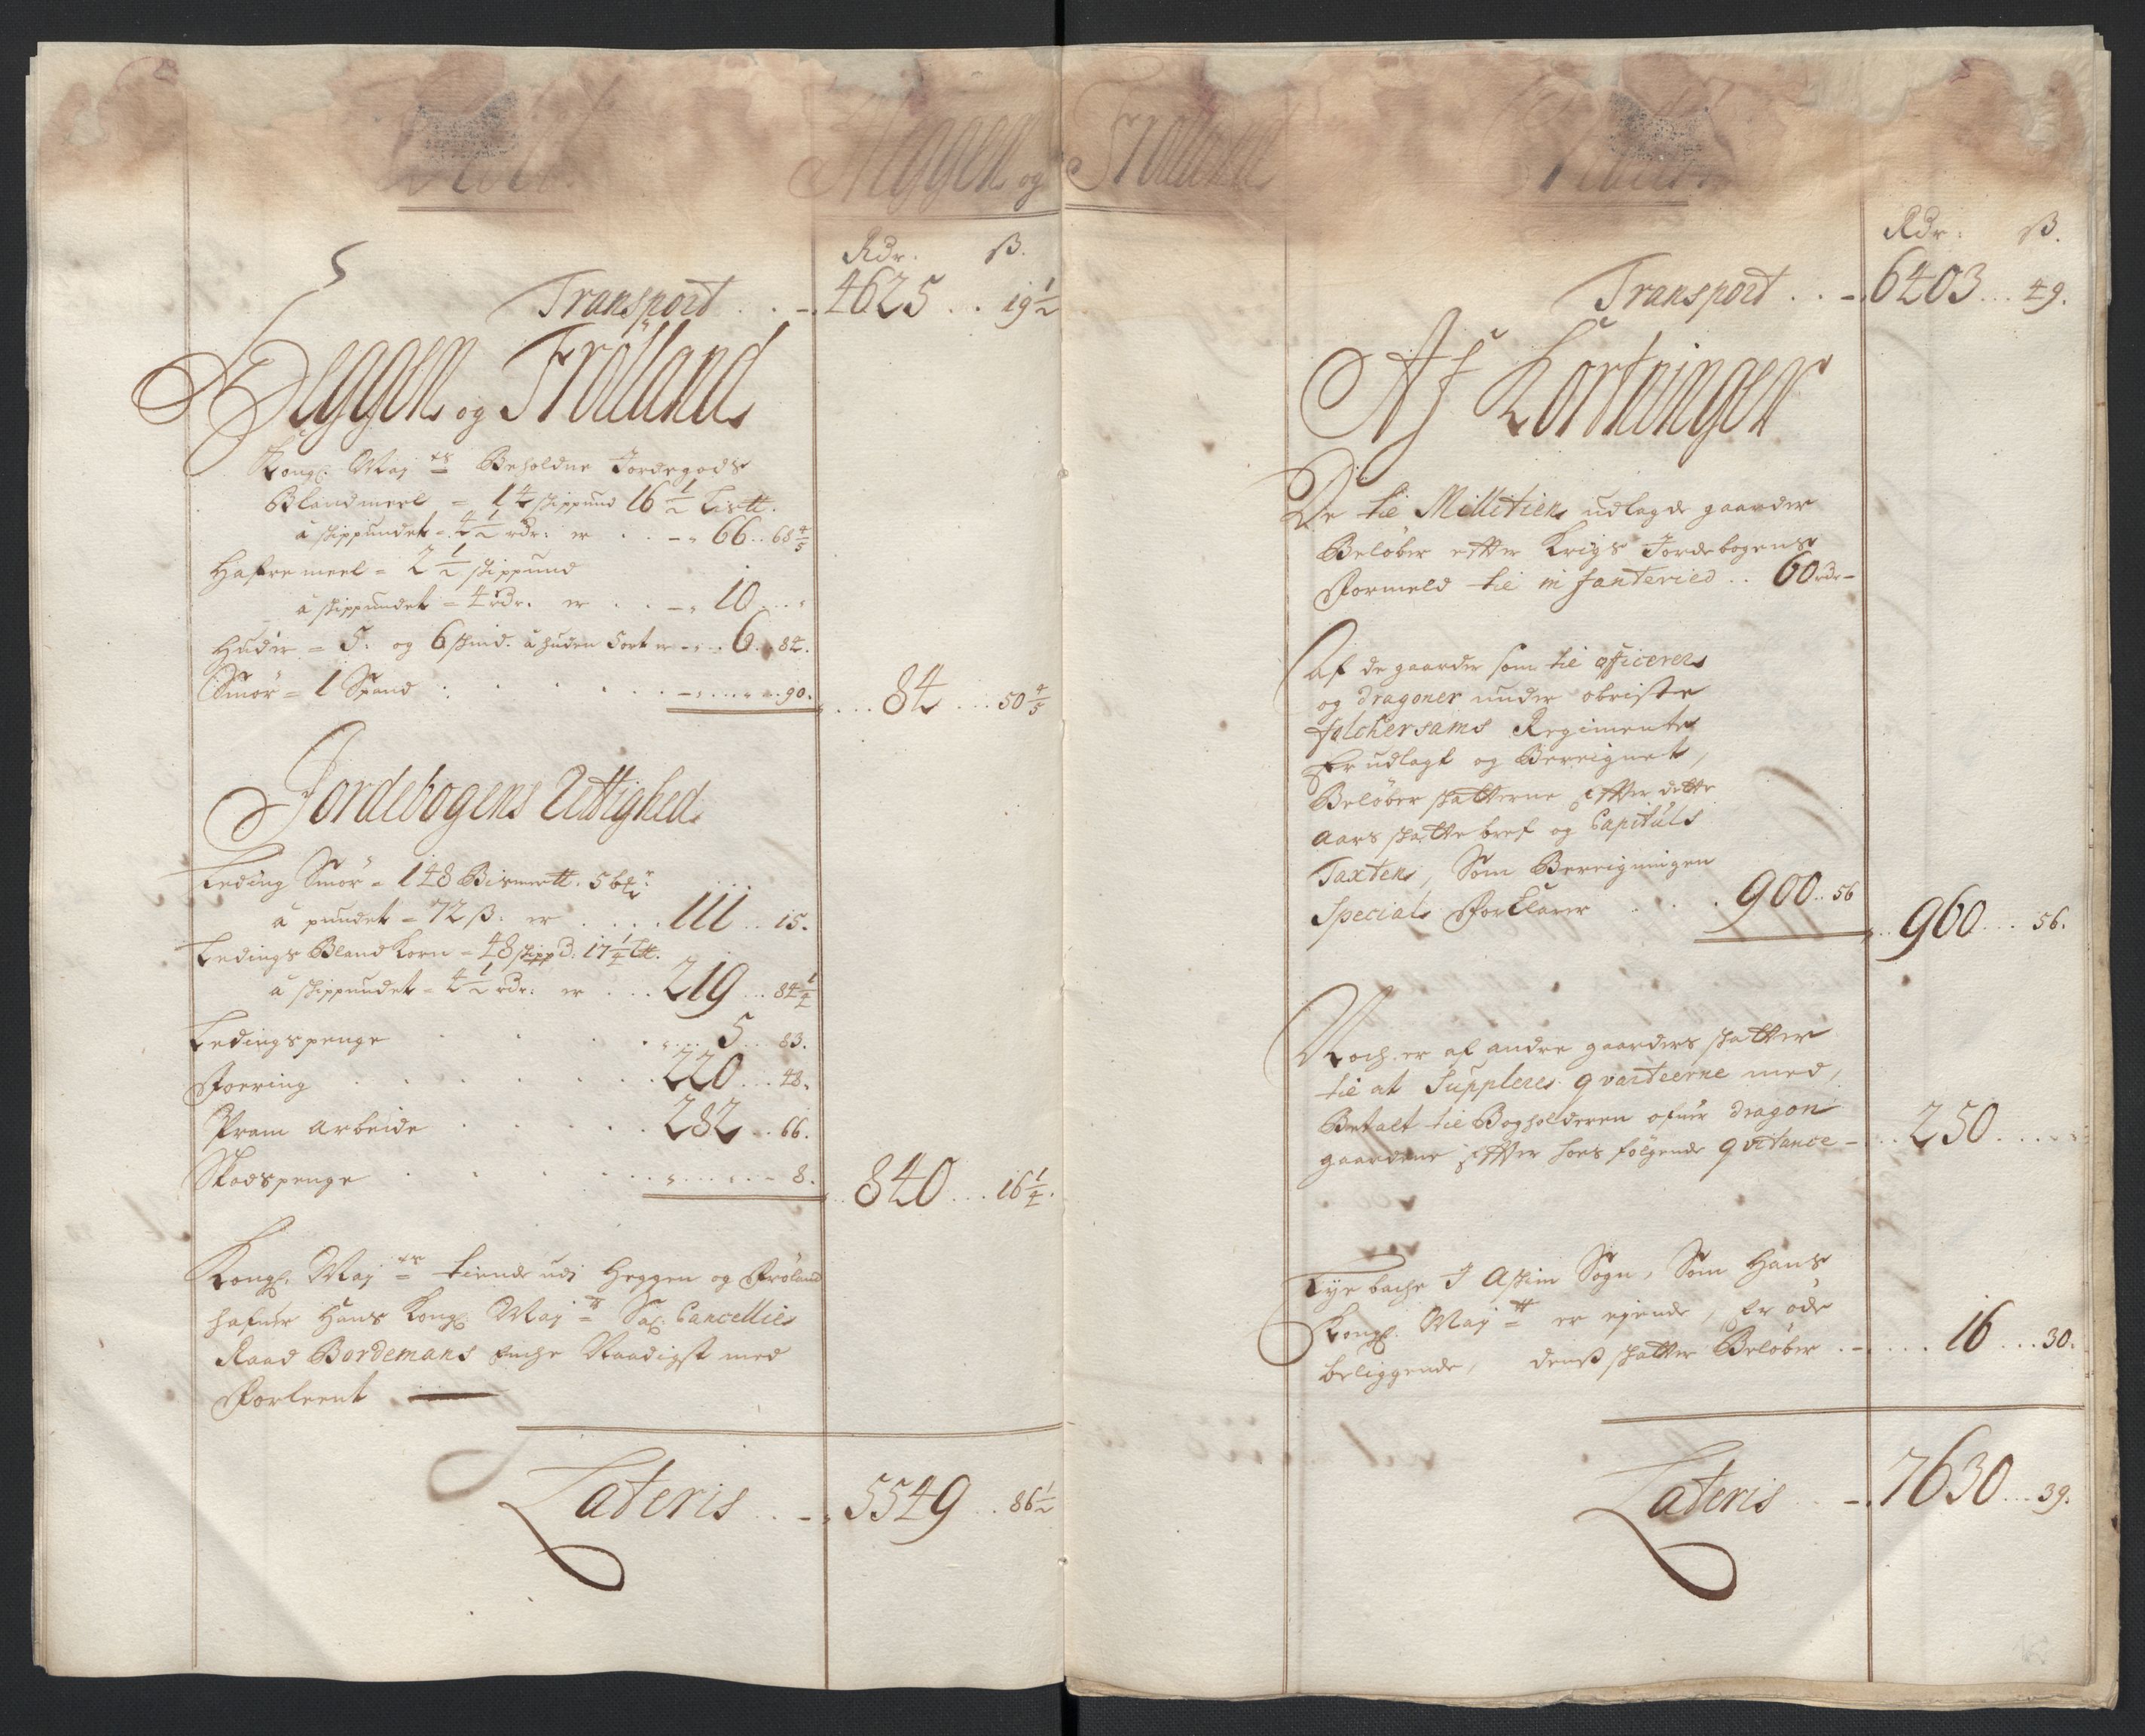 Debet.
Heggen og Frölland
Rdr: ß.
Transport . . -. 4625 . . 19½
Heggen og Frölland
Kongl: Maj ts Beholdne Jordegods
Blandmeel = 14 skippund 16½ Lis℔.
a skippundet = 4½ rdr: er . . -. 66 .. 68⅘
Hafremeel = 2½ skippund
a skippundet = 4 rdr. er . . -. 10 . . .
Huder = 5. og 6 skind. a huden 5 ort er -. . . 6 .. 84.
Smör = 1 Spand : . . . . -. . . . 90.
. . . 84 . . . 50⅘
Jordebogens Uttighed
Leding Smör = 148 Bismer℔. 5
a pundet = 72 ß: er . . . . 111 .. 15.
Ledings Bland Korn = 48 skippd. 17¼ L℔.
a skippundet = 4½ rdr: er . . . 219 .. 84¼
Ledingspenge . . . . 5 .. 83.
Foering . . . . . 220 . . . 48.
Pram Arbeide . . . . . 282 .. 66.
Skadspenge . . . . . . . 8.
. . 840 . . . 16¼.
Kongl. Maj ts tiende udj Heggen og Fröland
hafuer Hans Kongl: Maj tt Sal: Cancellie
Raad Bordemans Enche Naadigst med
Forleent
Lateris . . -. 5549 . . 86½
Credit
Rdr: ß.
Transport . . -. 6403 . . . 49.
Af Kortninger
De til Millitien udlagde gaarder
Belöber efter Krigs Jordebogens
Formeld til infanteried . . 60 rdr -
Af de gaarder som til officerer
og dragoner under obriste
folchersams Regimente
Er udlagt og Bereignet,
Beløber skatterne Efter dette
Aars skattebref og Capituls
Taxten, Som Bereigningen
Special Forklarer . . . 900 .. 56
. . 960 . . . 56.
Noch er af andre gaarders skatter
til at Supplere qvarteerne med,
Betalt til Bogholderen ofuer dragon
gaardene Efter hoes følgende qvitance - . . 250 . . . . .
Tyebache I Askim Sogn, Som Hans
Kongl. Maj tt er eyende, Er öde
beliggende, denß skatter Beløber . -. . . . 16 . . . 30.
Lateris . . -. 7630 . . . 39.